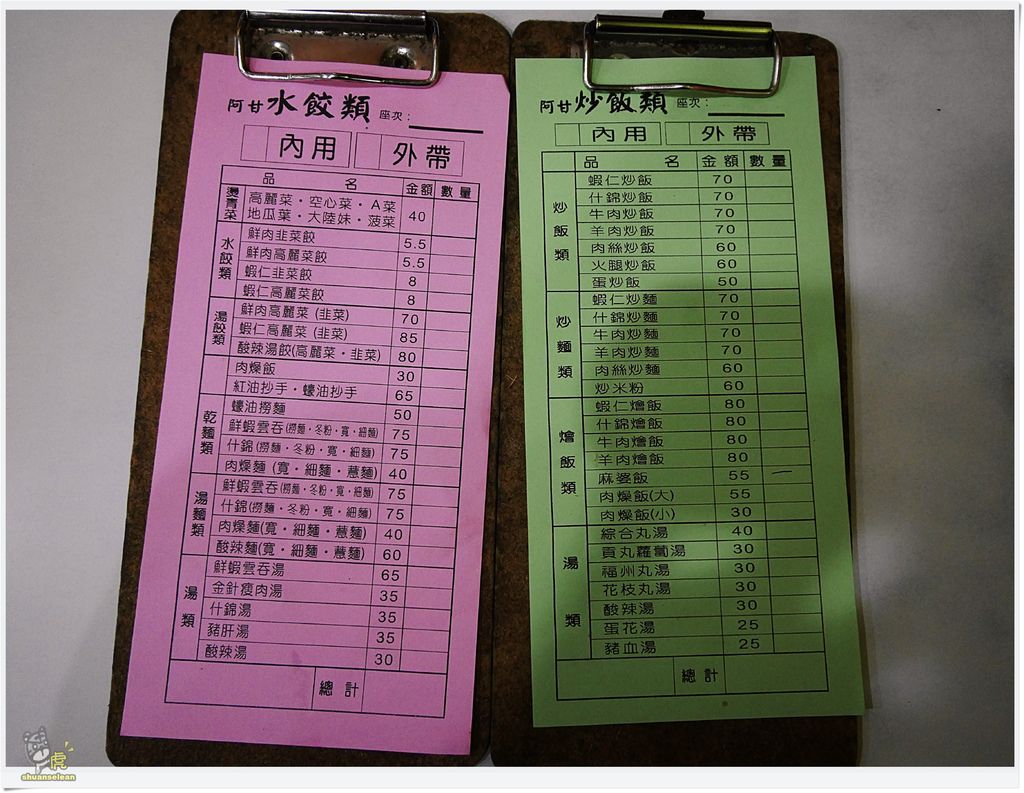 阿甘水餃類 座次：
內用 外帶
品名 金額 數量
燙青菜
高麗菜・空心菜・A菜
地瓜葉・大陸妹・菠菜 40
水餃類
鮮肉韭菜餃 5.5
鮮肉高麗菜餃 5.5
蝦仁韭菜餃 8
蝦仁高麗菜餃 8
湯餃類
鮮肉高麗菜(韭菜) 70
蝦仁高麗菜(韭菜) 85
酸辣湯餃(高麗菜・韭菜) 80
乾麵類
肉燥飯 30
紅油抄手・蠔油抄手 65
蠔油撈麵 50
鮮蝦雲吞(撈麵・冬粉・寬・細麵) 75
什錦(撈麵・冬粉・寬・細麵) 75
肉燥麵(寬・細麵・薏麵) 40
湯麵類
鮮蝦雲吞(撈麵・冬粉・寬・細麵) 75
什錦(撈麵・冬粉・寬・細麵) 75
肉燥麵(寬・細麵・薏麵) 40
酸辣麵(寬・細麵・薏麵) 60
湯類
鮮蝦雲吞湯 65
金針瘦肉湯 35
什錦湯 35
豬肝湯 35
酸辣湯 30
總計
阿甘炒飯類 座次：
內用 外帶
品名 金額 數量
炒飯類
蝦仁炒飯 70
什錦炒飯 70
牛肉炒飯 70
羊肉炒飯 70
肉絲炒飯 60
火腿炒飯 60
蛋炒飯 50
炒麵類
蝦仁炒麵 70
什錦炒麵 70
牛肉炒麵 70
羊肉炒麵 70
肉絲炒麵 60
炒米粉 60
燴飯類
蝦仁燴飯 80
什錦燴飯 80
牛肉燴飯 80
羊肉燴飯 80
麻婆飯 55
肉燥飯(大) 55
肉燥飯(小) 30
湯類
綜合丸湯 40
貢丸蘿蔔湯 30
福州丸湯 30
花枝丸湯 30
酸辣湯 30
蛋花湯 25
豬血湯 25
總計
虎
shuanselean